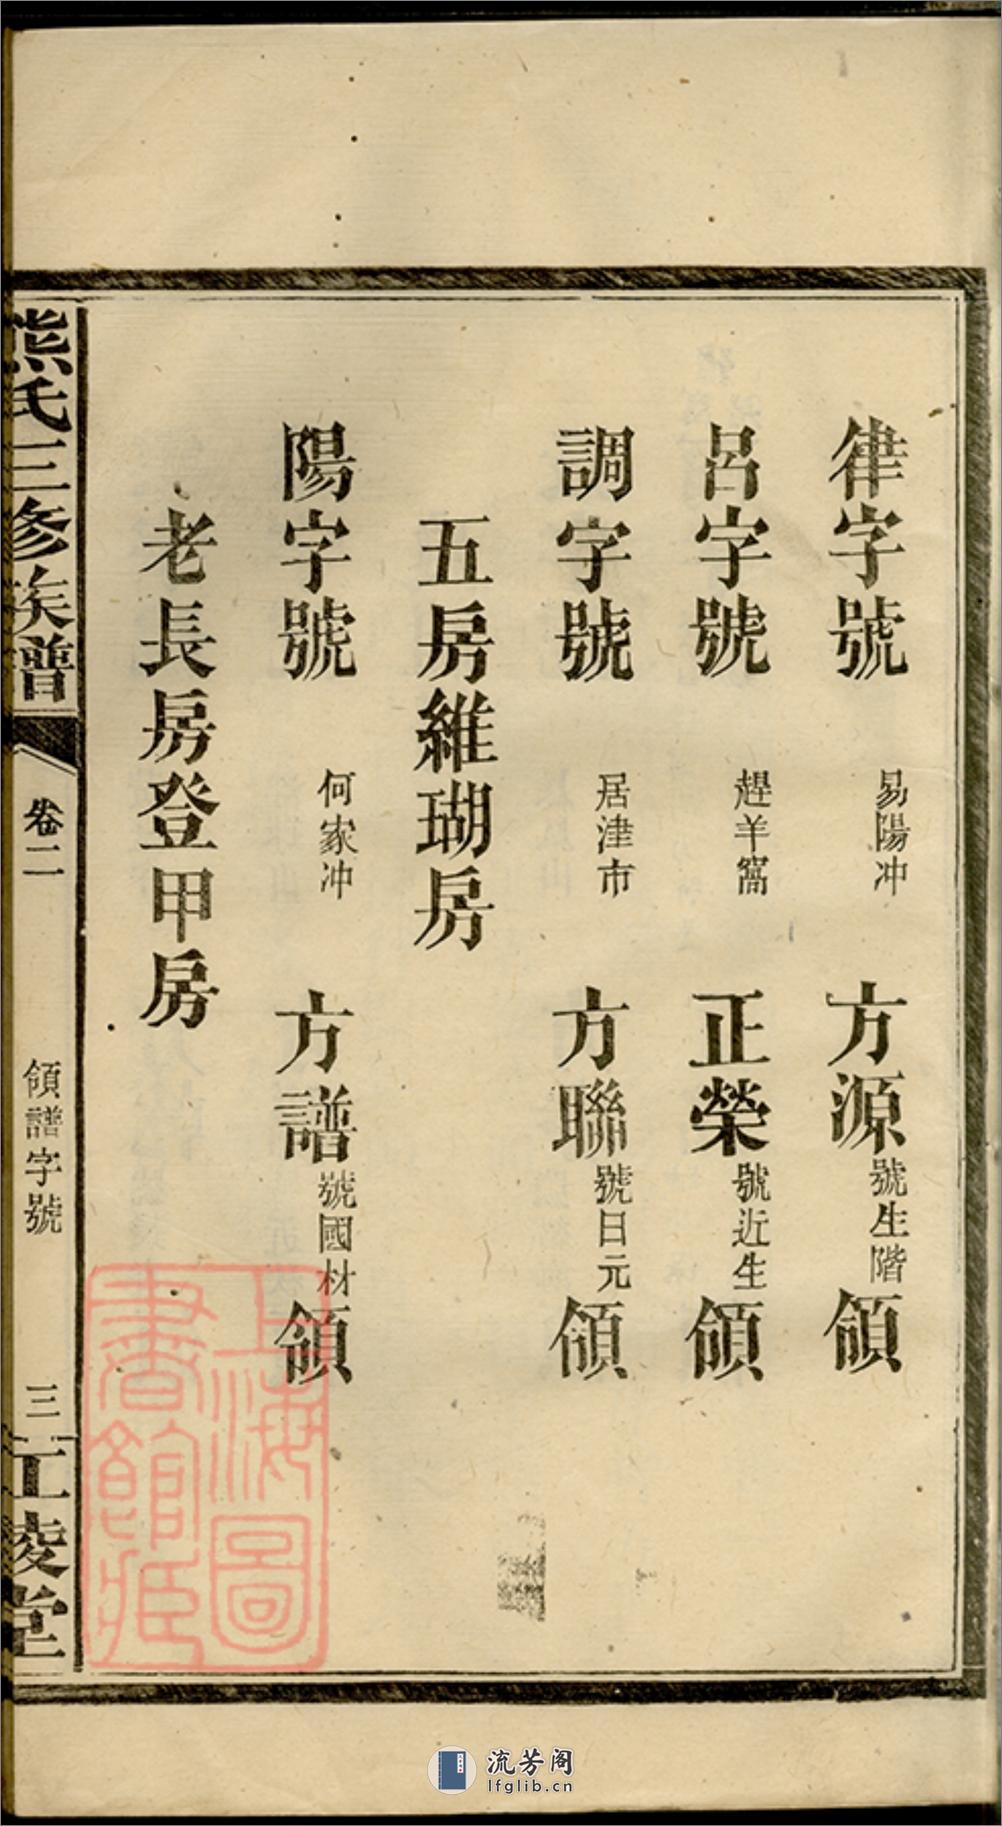 律字號 易陽冲 方源號生階領
呂字號 趕羊窩 正榮號近生領
調字號 居津市 方聯號日元領
五房維瑚房
陽字號 何家冲 方譜號國材領
老長房登甲房
熊氏三修族譜 卷二 領譜字號 三 江陵堂
上海圖書館藏
流芳阁
lfglib.cn